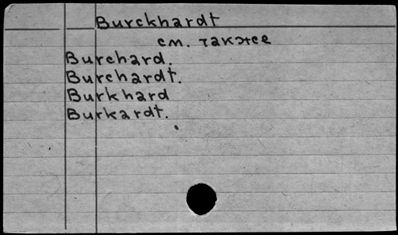 Burckhardt
см. также
Burchard.
Burchardt.
Burkhard
Burkardt.